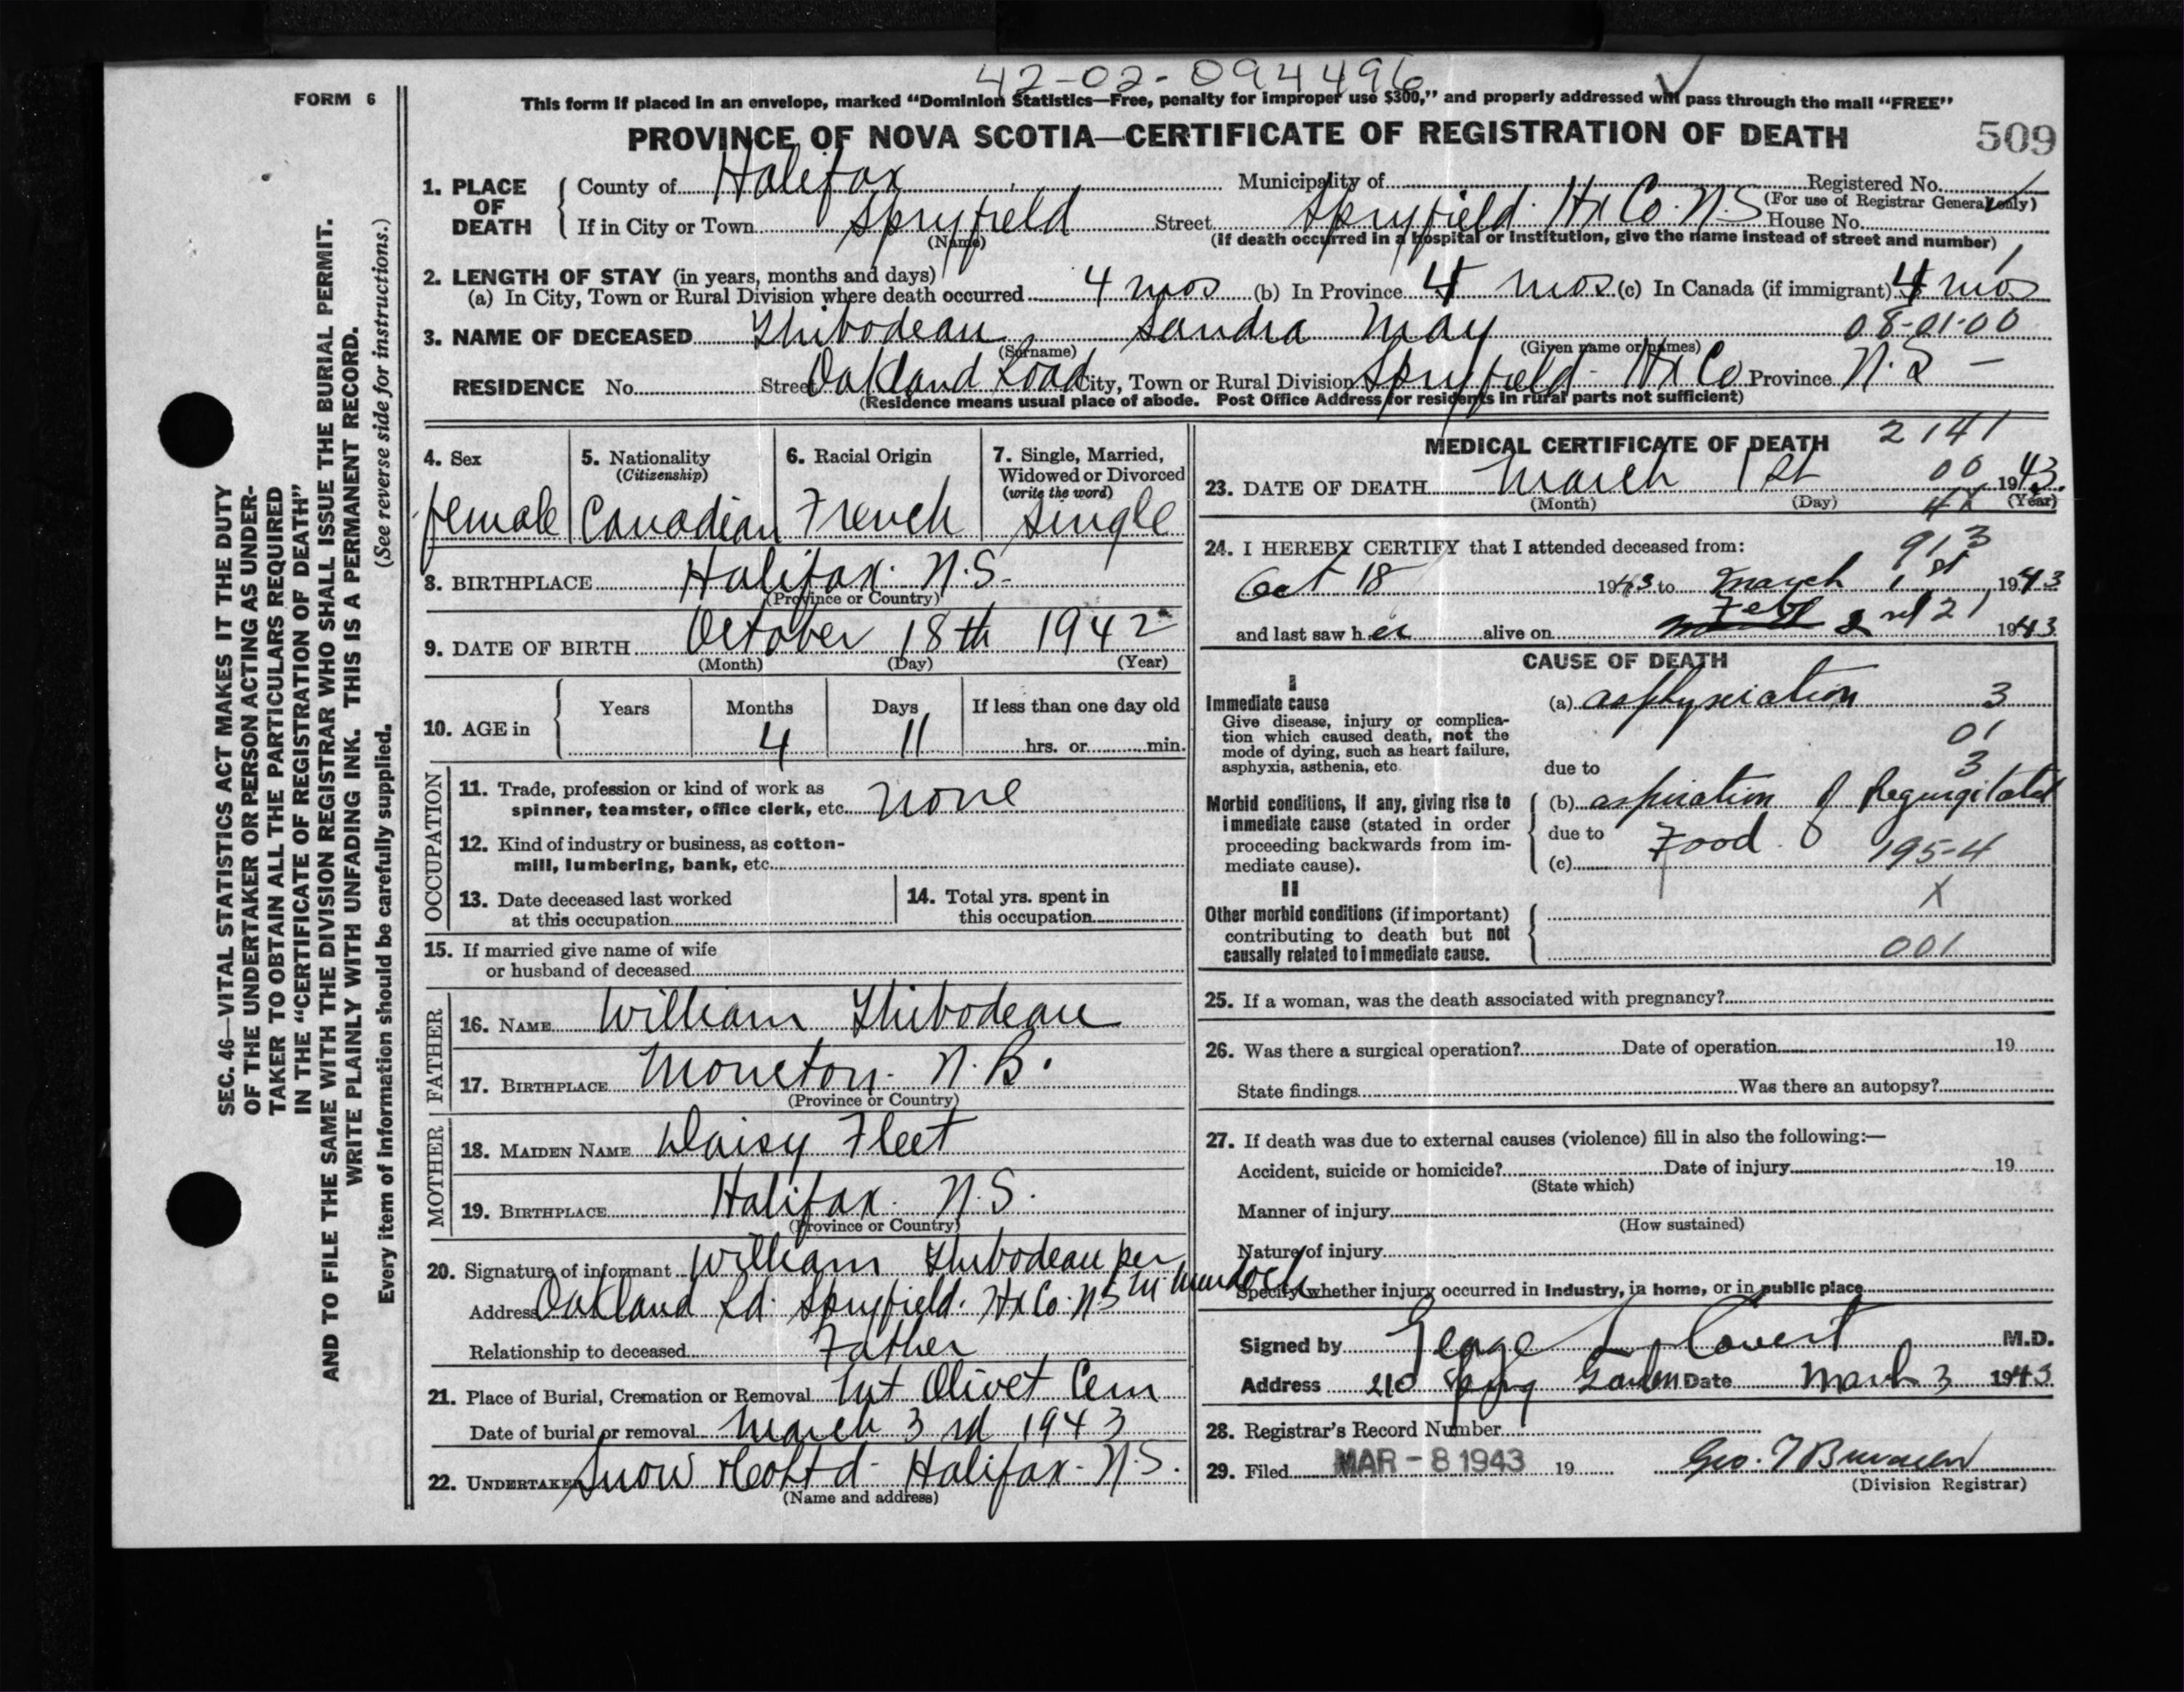 42-02-094496
FORM 6
This form if placed in an envelope, marked “Dominion Statistics—Free, penalty for improper use $300,” and properly addressed will pass through the mail “FREE”
PROVINCE OF NOVA SCOTIA—CERTIFICATE OF REGISTRATION OF DEATH 509
1. PLACE OF DEATH
County of Halifax Municipality of Registered No.
(For use of Registrar General only)
If in City or Town Spryfield Street Spryfield. Hx Co. N.S House No.
(Name) (If death occurred in a hospital or Institution, give the name instead of street and number)
2. LENGTH OF STAY (in years, months and days)
(a) In City, Town or Rural Division where death occurred 4 mos (b) In Province 4 mos (c) In Canada (if immigrant) 4 mos
3. NAME OF DECEASED Thibodeau Sandra May 08-01-00
(Surname) (Given name or names)
RESIDENCE No. Street Oakland Road City, Town or Rural Division Spryfield - Hx Co Province N.S -
(Residence means usual place of abode. Post Office Address for residents in rural parts not sufficient)
4. Sex
female
5. Nationality
(Citizenship)
Canadian
6. Racial Origin
French
7. Single, Married,
Widowed or Divorced
(write the word)
Single
8. BIRTHPLACE Halifax. N.S.
(Province or Country)
9. DATE OF BIRTH October 18th 1942
(Month) (Day) (Year)
10. AGE in
Years Months Days If less than one day old
4 11 hrs. or min.
OCCUPATION
11. Trade, profession or kind of work as
spinner, teamster, office clerk, etc. none
12. Kind of industry or business, as cotton-
mill, lumbering, bank, etc.
13. Date deceased last worked
at this occupation
14. Total yrs. spent in
this occupation
15. If married give name of wife
or husband of deceased
FATHER
16. NAME William Thibodeau
17. BIRTHPLACE Moncton. N.B.
(Province or Country)
MOTHER
18. MAIDEN NAME Daisy Fleet
19. BIRTHPLACE Halifax. N.S.
(Province or Country)
20. Signature of informant William Thibodeau per
M Murdoch
Address Oakland Rd. Spryfield. Hx Co. N.S
Relationship to deceased Father
21. Place of Burial, Cremation or Removal Mt Olivet Cem
Date of burial or removal March 3rd 1943
22. UNDERTAKER Snow & Co Ltd - Halifax - N.S.
(Name and address)
MEDICAL CERTIFICATE OF DEATH 2141
23. DATE OF DEATH March 1st 00 1943.
(Month) (Day) 4X (Year)
24. I HEREBY CERTIFY that I attended deceased from: 913
Oct 18 1943 to March 1st 1943
and last saw her alive on Feb 21 1943
CAUSE OF DEATH
I
Immediate cause
Give disease, injury or complica-
tion which caused death, not the
mode of dying, such as heart failure,
asphyxia, asthenia, etc.
(a) asphyxiation 3
01
due to 3
Morbid conditions, if any, giving rise to
immediate cause (stated in order
proceeding backwards from im-
mediate cause).
(b) aspiration of Regurgitated
due to Food. 195-4
(c)
X
II
Other morbid conditions (if important)
contributing to death but not
causally related to immediate cause.
001
25. If a woman, was the death associated with pregnancy?
26. Was there a surgical operation? Date of operation 19
State findings Was there an autopsy?
27. If death was due to external causes (violence) fill in also the following:—
Accident, suicide or homicide? Date of injury 19
(State which)
Manner of injury
(How sustained)
Nature of injury
Specify whether injury occurred in Industry, in home, or in public place
Signed by George L Covert M.D.
Address 210 Spring Garden Date March 3 1943
28. Registrar's Record Number
29. Filed MAR - 8 1943 19 Geo.
(Division Registrar)
SEC. 46—VITAL STATISTICS ACT MAKES IT THE DUTY
OF THE UNDERTAKER OR PERSON ACTING AS UNDER-
TAKER TO OBTAIN ALL THE PARTICULARS REQUIRED
IN THE “CERTIFICATE OF REGISTRATION OF DEATH”
AND TO FILE THE SAME WITH THE DIVISION REGISTRAR WHO SHALL ISSUE THE BURIAL PERMIT.
WRITE PLAINLY WITH UNFADING INK. THIS IS A PERMANENT RECORD.
Every item of information should be carefully supplied. (See reverse side for instructions.)